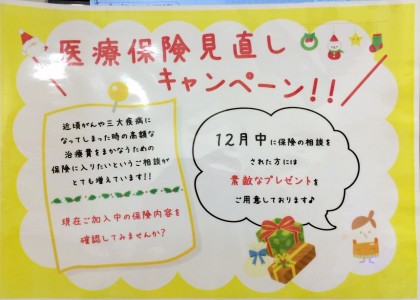 医療保険見直し
キャンペーン!!
近頃がんや三大疾病に
なってしまった時の高額な
治療費をまかなうための
保険に入りたいというご相談が
とても増えています!!
現在ご加入中の保険内容を
確認してみませんか?
12月中に保険の相談を
された方には
素敵なプレゼントを
ご用意しております♪